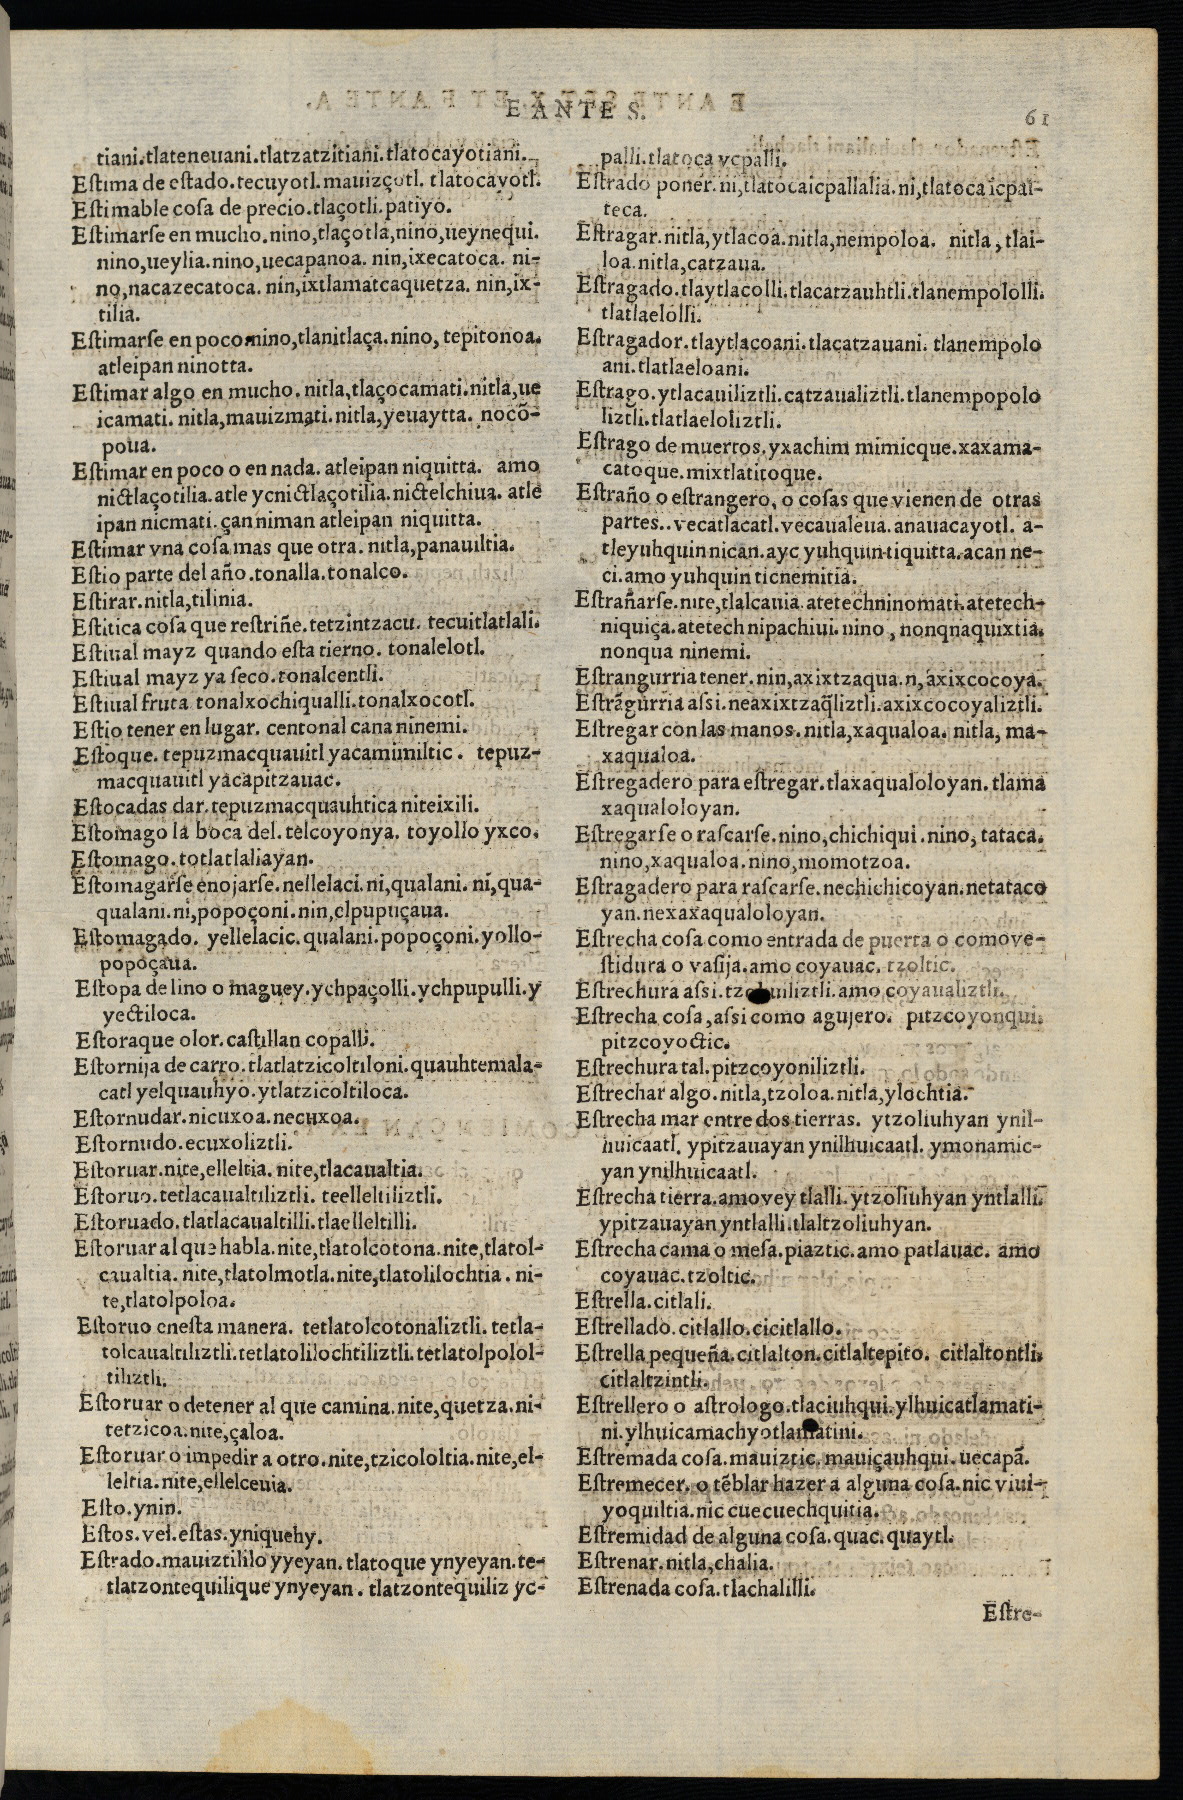 E ANTE S.
61
tiani.tlateneuani.tlatzatzitiani.tlatocayotiani.
Estima de estado.tecuyotl.mauizçotl. tlatocayotl.
Estimable cosa de precio.tlaçotli.patiyo.
Estimarse en mucho.nino,tlaçotla,nino,ueynequi.
nino,ueylia.nino,uecapanoa. nin,ixecatoca. ni-
no,nacazecatoca. nin,ixtlamatcaquetza. nin,ix-
tilia.
Estimarse en poco.nino,tlanitlaça.nino, tepitonoa.
atleipan ninotta.
Estimar algo en mucho. nitla,tlaçocamati.nitla,ue
icamati. nitla,mauizmati.nitla,yeuaytta. nocõ-
poua.
Estimar en poco o en nada. atleipan niquitta. amo
nictlaçotilia.atle ycnictlaçotilia.nictelchiua. atle
ipan nicmati.çan niman atleipan niquitta.
Estimar vna cosa mas que otra. nitla,panauiltia.
Estio parte del año.tonalla.tonalco.
Estirar.nitla,tilinia.
Estitica cosa que restriñe.tetzintzacu. tecuitlatlali.
Estiual mayz quando esta tierno. tonalelotl.
Estiual mayz ya seco.tonalcentli.
Estiual fruta tonalxochiqualli.tonalxocotl.
Estio tener en lugar. centonal cana ninemi.
Estoque. tepuzmacquauitl yacamimiltic. tepuz-
macquauitl yacapitzauac.
Estocadas dar.tepuzmacquauhtica niteixili.
Estomago la boca del.telcoyonya. toyollo yxco.
Estomago.totlatlaliayan.
Estomagarse enojarse.nellelaci.ni,qualani. ni,qua-
qualani.ni,popoçoni.nin,elpupuçaua.
Estomagado. yellelacic.qualani.popoçoni.yollo-
popoçaua.
Estopa de lino o maguey.ychpaçolli.ychpupulli.y
yectiloca.
Estoraque olor.castillan copalli.
Estornija de carro.tlatlatzicoltiloni.quauhtemala-
catl yelquauhyo.ytlatzicoltiloca.
Estornudar.nicuxoa.necuxoa.
Estornudo.ecuxoliztli.
Estoruar.nite,elleltia. nite,tlacaualtia.
Estoruo.tetlacaualtiliztli. teelleltiliztli.
Estoruado.tlatlacaualtilli.tlaelleltilli.
Estoruar al que habla.nite,tlatolcotona.nite,tlatol-
caualtia. nite,tlatolmotla.nite,tlatolilochtia. ni-
te,tlatolpoloa.
Estoruo enesta manera. tetlatolcotonaliztli. tetla-
tolcaualtiliztli.tetlatolilochtiliztli.tetlatolpolol-
tiliztli.
Estoruar o detener al que camina.nite,quetza.ni-
tetzicoa.nite,çaloa.
Estoruar o impedir a otro.nite,tzicololtia.nite,el-
leltia.nite,ellelceuia.
Esto.ynin.
Estos.vel.estas.yniquehy.
Estrado.mauiztililo yyeyan.tlatoque ynyeyan.te-
tlatzontequilique ynyeyan. tlatzontequiliz yc-
palli.tlatoca ycpalli.
Estrado poner.ni,tlatocaicpallalia.ni,tlatoca icpal-
teca.
Estragar.nitla,ytlacoa.nitla,nempoloa. nitla,tlai-
loa.nitla,catzaua.
Estragado.tlaytlacolli.tlacatzauhtli.tlanempololli.
tlatlaelolli.
Estragador.tlaytlacoani.tlacatzauani. tlanempolo
ani.tlatlaeloani.
Estrago.ytlacauiliztli.catzaualiztli.tlanempopolo
liztli.tlatlaeloliztli.
Estrago de muertos.yxachim mimicque.xaxama-
catoque.mixtlatitoque.
Estraño o estrangero, o cosas que vienen de otras
partes..vecatlacatl.vecaualeua.anauacayotl. a-
tleyuhquin nican.ayc yuhquin tiquitta.acan ne-
ci.amo yuhquin ticnemitia.
Estrañarse.nite,tlalcauia.atetechninomati.atetech-
niquiça.atetech nipachiui.nino, nonqnaquixtia.
nonqua ninemi.
Estrangurria tener.nin,axixtzaqua.n,axixcocoya.
Estrãgurria assi.neaxixtzaq̃liztli.axixcocoyaliztli.
Estregar con las manos.nitla,xaqualoa. nitla, ma-
xaqualoa.
Estregadero para estregar.tlaxaqualoloyan.tlama
xaqualoloyan.
Estregarse o rascarse.nino,chichiqui.nino, tataca.
nino,xaqualoa.nino,momotzoa.
Estragadero para rascarse.nechichicoyan.netataco
yan.nexaxaqualoloyan.
Estrecha cosa como entrada de puerta o comove-
stidura o vasija.amo coyauac. tzoltic.
Estrechura assi. amo coyaualiztli.
Estrecha cosa,assi como agujero. pitzcoyonqui.
pitzcoyoctic.
Estrechura tal.pitzcoyoniliztli.
Estrechar algo.nitla,tzoloa.nitla,ylochtia.
Estrecha mar entre dos tierras. ytzoliuhyan ynil-
huicaatl. ypitzauayan ynilhuicaatl. ymonamic-
yan ynilhuicaatl.
Estrecha tierra.amovey tlalli.ytzoliuhyan yntlalli.
ypitzauayan yntlalli.tlaltzoliuhyan.
Estrecha cama o mesa.piaztic.amo patlauac. amo
coyauac.tzoltic.
Estrella.citlali.
Estrellado.citlallo.cicitlallo.
Estrella pequeña.citlalton.citlaltepito. citlaltontli.
citlaltzintli.
Estrellero o astrologo.tlaciuhqui.ylhuicatlamati-
ni.ylhuicamachyotlamatini.
Estremada cosa.mauiztic.mauiçauhqui.uecapã.
Estremecer. o tẽblar hazer a alguna cosa.nic viui-
yoquiltia.nic cuecuechquitia.
Estremidad de alguna cosa.quac.quaytl.
Estrenar.nitla,chalia.
Estrenada cosa.tlachalilli.
Estre-